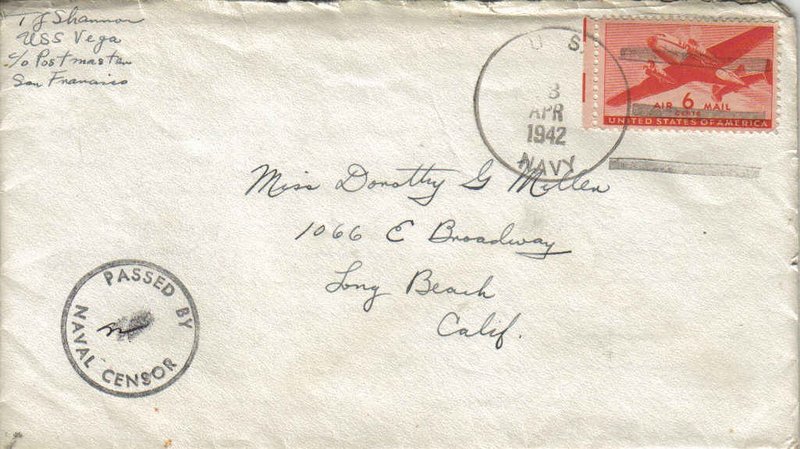 T J Shannon
USS Vega
c/o Postmaster
San Francisco
U. S.
3
APR
1942
NAVY
AIR 6 MAIL
CENTS
UNITED STATES OF AMERICA
Miss Dorothy G Miller
1066 E Broadway
Long Beach
Calif.
PASSED BY
NAVAL CENSOR